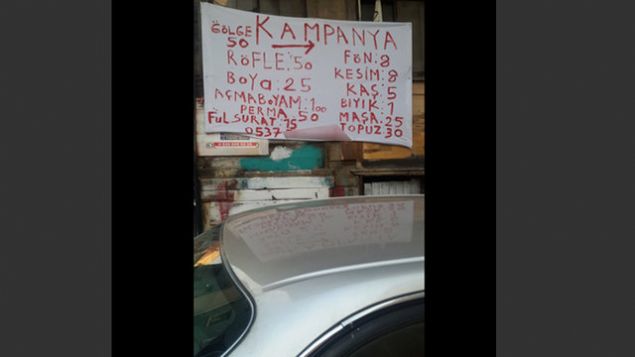 KAMPANYA
GÖLGE
50
RÖFLE:50
BOYA:25
AÇMABOYAM:100
PERMA:50
FÜL SURAT:15
0537
FÖN:8
KESİM:8
KAŞ:5
BIYIK:1
MAŞA:25
TOPUZ 30